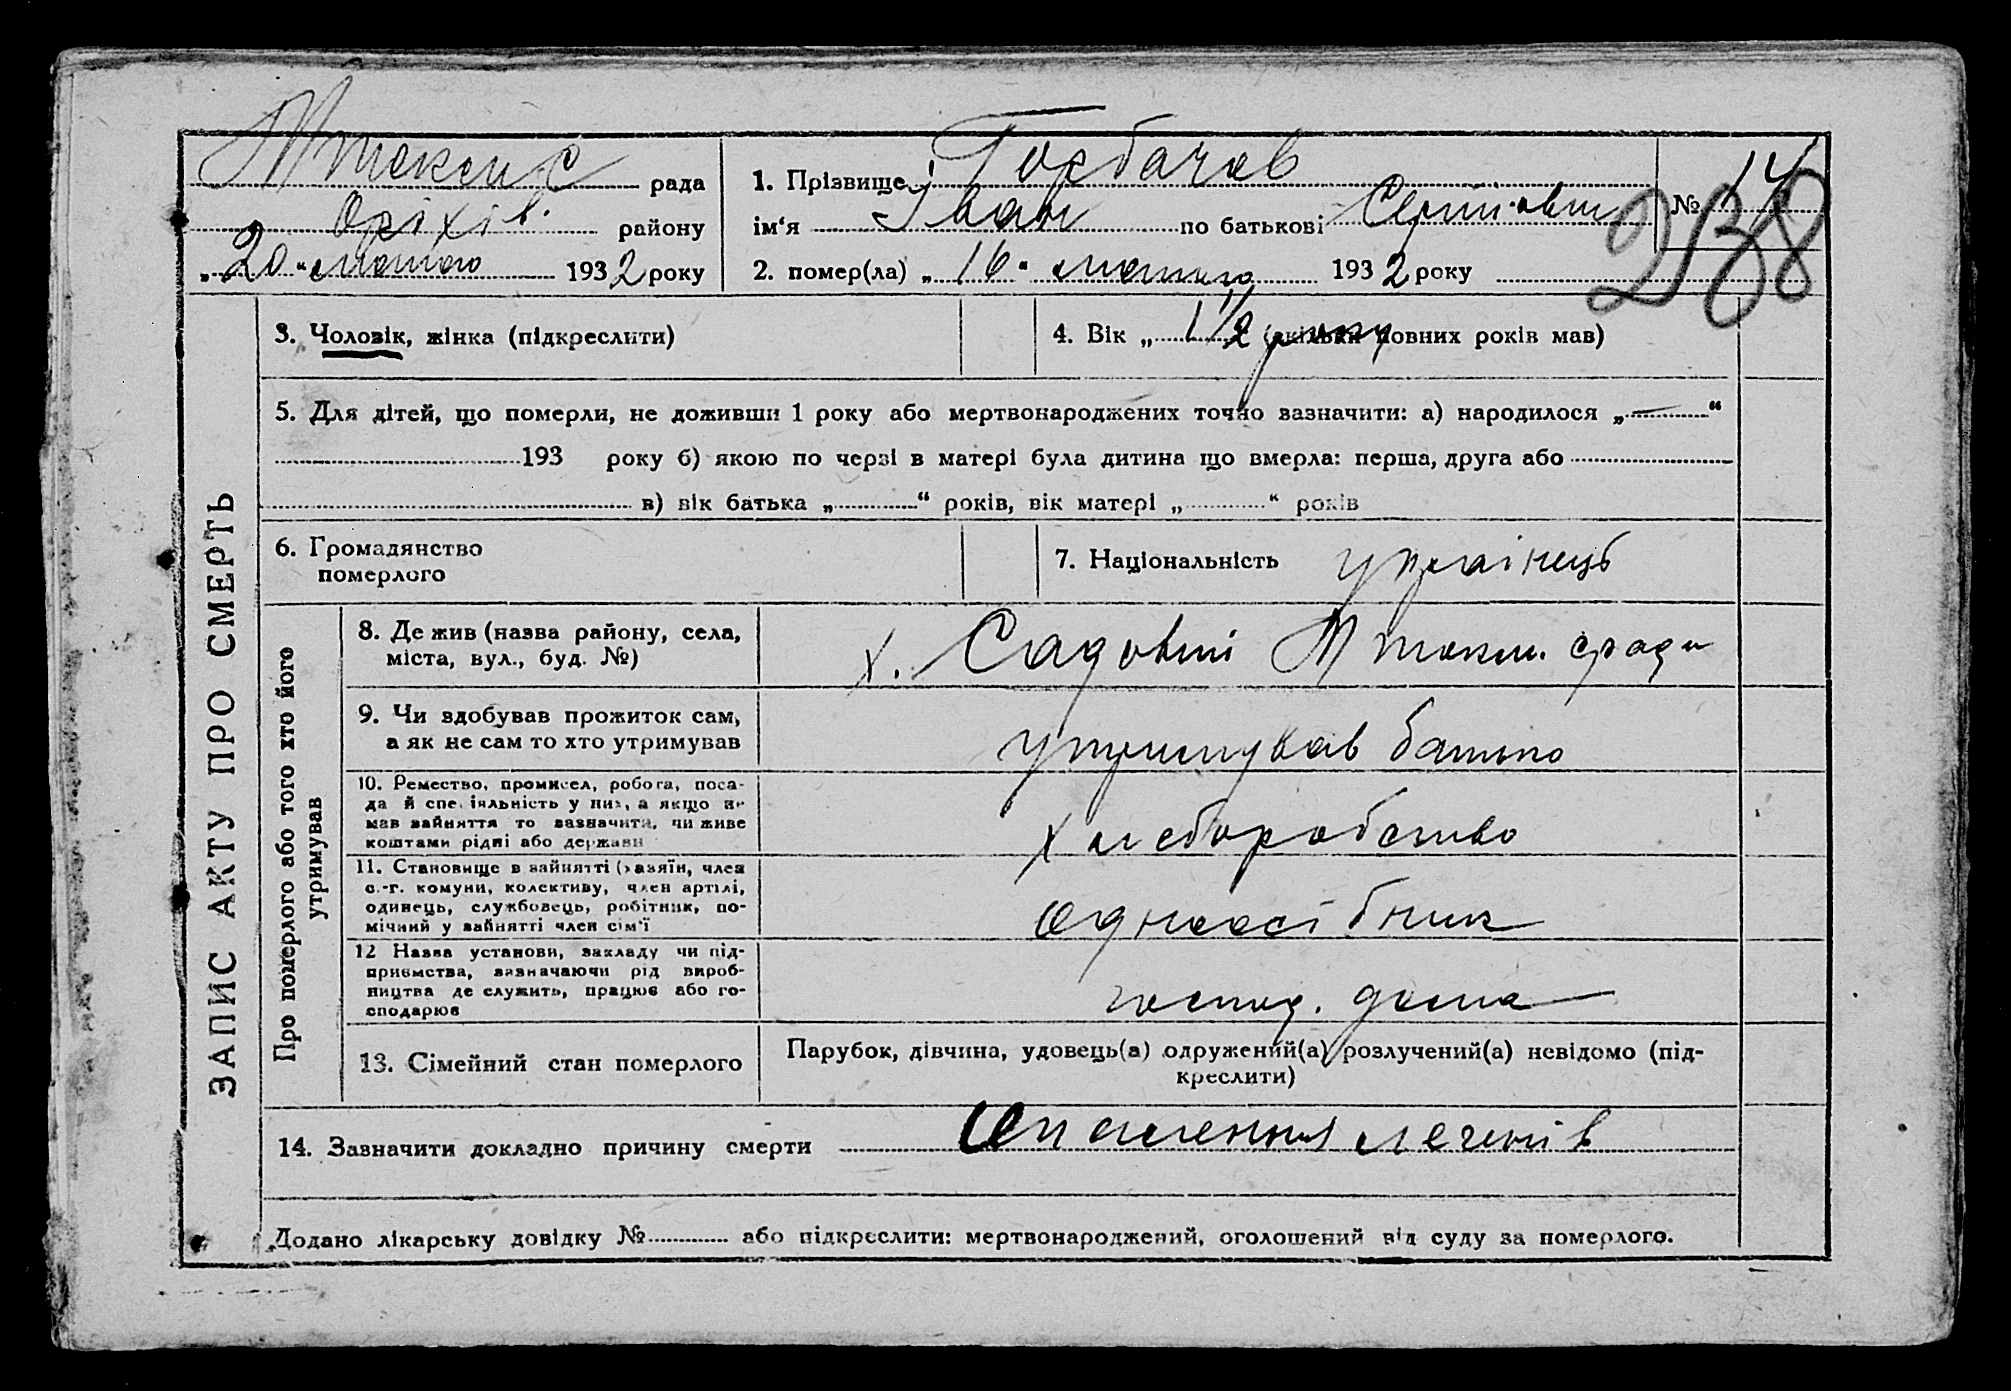 рада 1. Прізвище Горбачов № 14
Оріхів. району ім'я Іван по батькові
238
„20“ лютого 1932 року 2. помер(ла) „16“ лютого 1932 року
3. Чоловік, жінка (підкреслити) 4. Вік „1 1/2 року (скільки повних років мав)
5. Для дітей, що померли, не доживши 1 року або мертвонароджених точно вазначити: а) народилося „—“
193 року б) якою по черзі в матері була дитина що вмерла: перша, друга або
в) вік батька „ “ років, вік матері „ “ років
6. Громадянство
померлого
7. Національність українець
ЗАПИС АКТУ ПРО СМЕРТЬ
Про померлого або того хто його
утримував
8. Де жив (назва району, села,
міста, вул., буд. №)
х. Садовий с/ради
9. Чи здобував прожиток сам,
а як не сам то хто утримував
утримував батько
10. Ремество, промисел, робота, поса-
да й спеціяльність у них, а якщо не
мав зайняття то вазначити, чи живе
коштами рідні або держави
хлеборобство
11. Становище в зайнятті (хазяїн, член
с.-г. комуни, колективу, член артілі,
одинець, службовець, робітник, по-
мічний у зайнятті член сім'ї
одноосібник
12 Назва установи, закладу чи під-
приємства, вазначаючи рід вироб-
ництва де служить, працює або го-
сподарює
господ. дома
13. Сімейний стан померлого
Парубок, дівчина, удовець(а) одружений(а) розлучений(а) невідомо (під-
креслити)
14. Зазначити докладно причину смерти Опалення легенів
Додано лікарську довідку № або підкреслити: мертвонароджений, оголошений від суду за померлого.